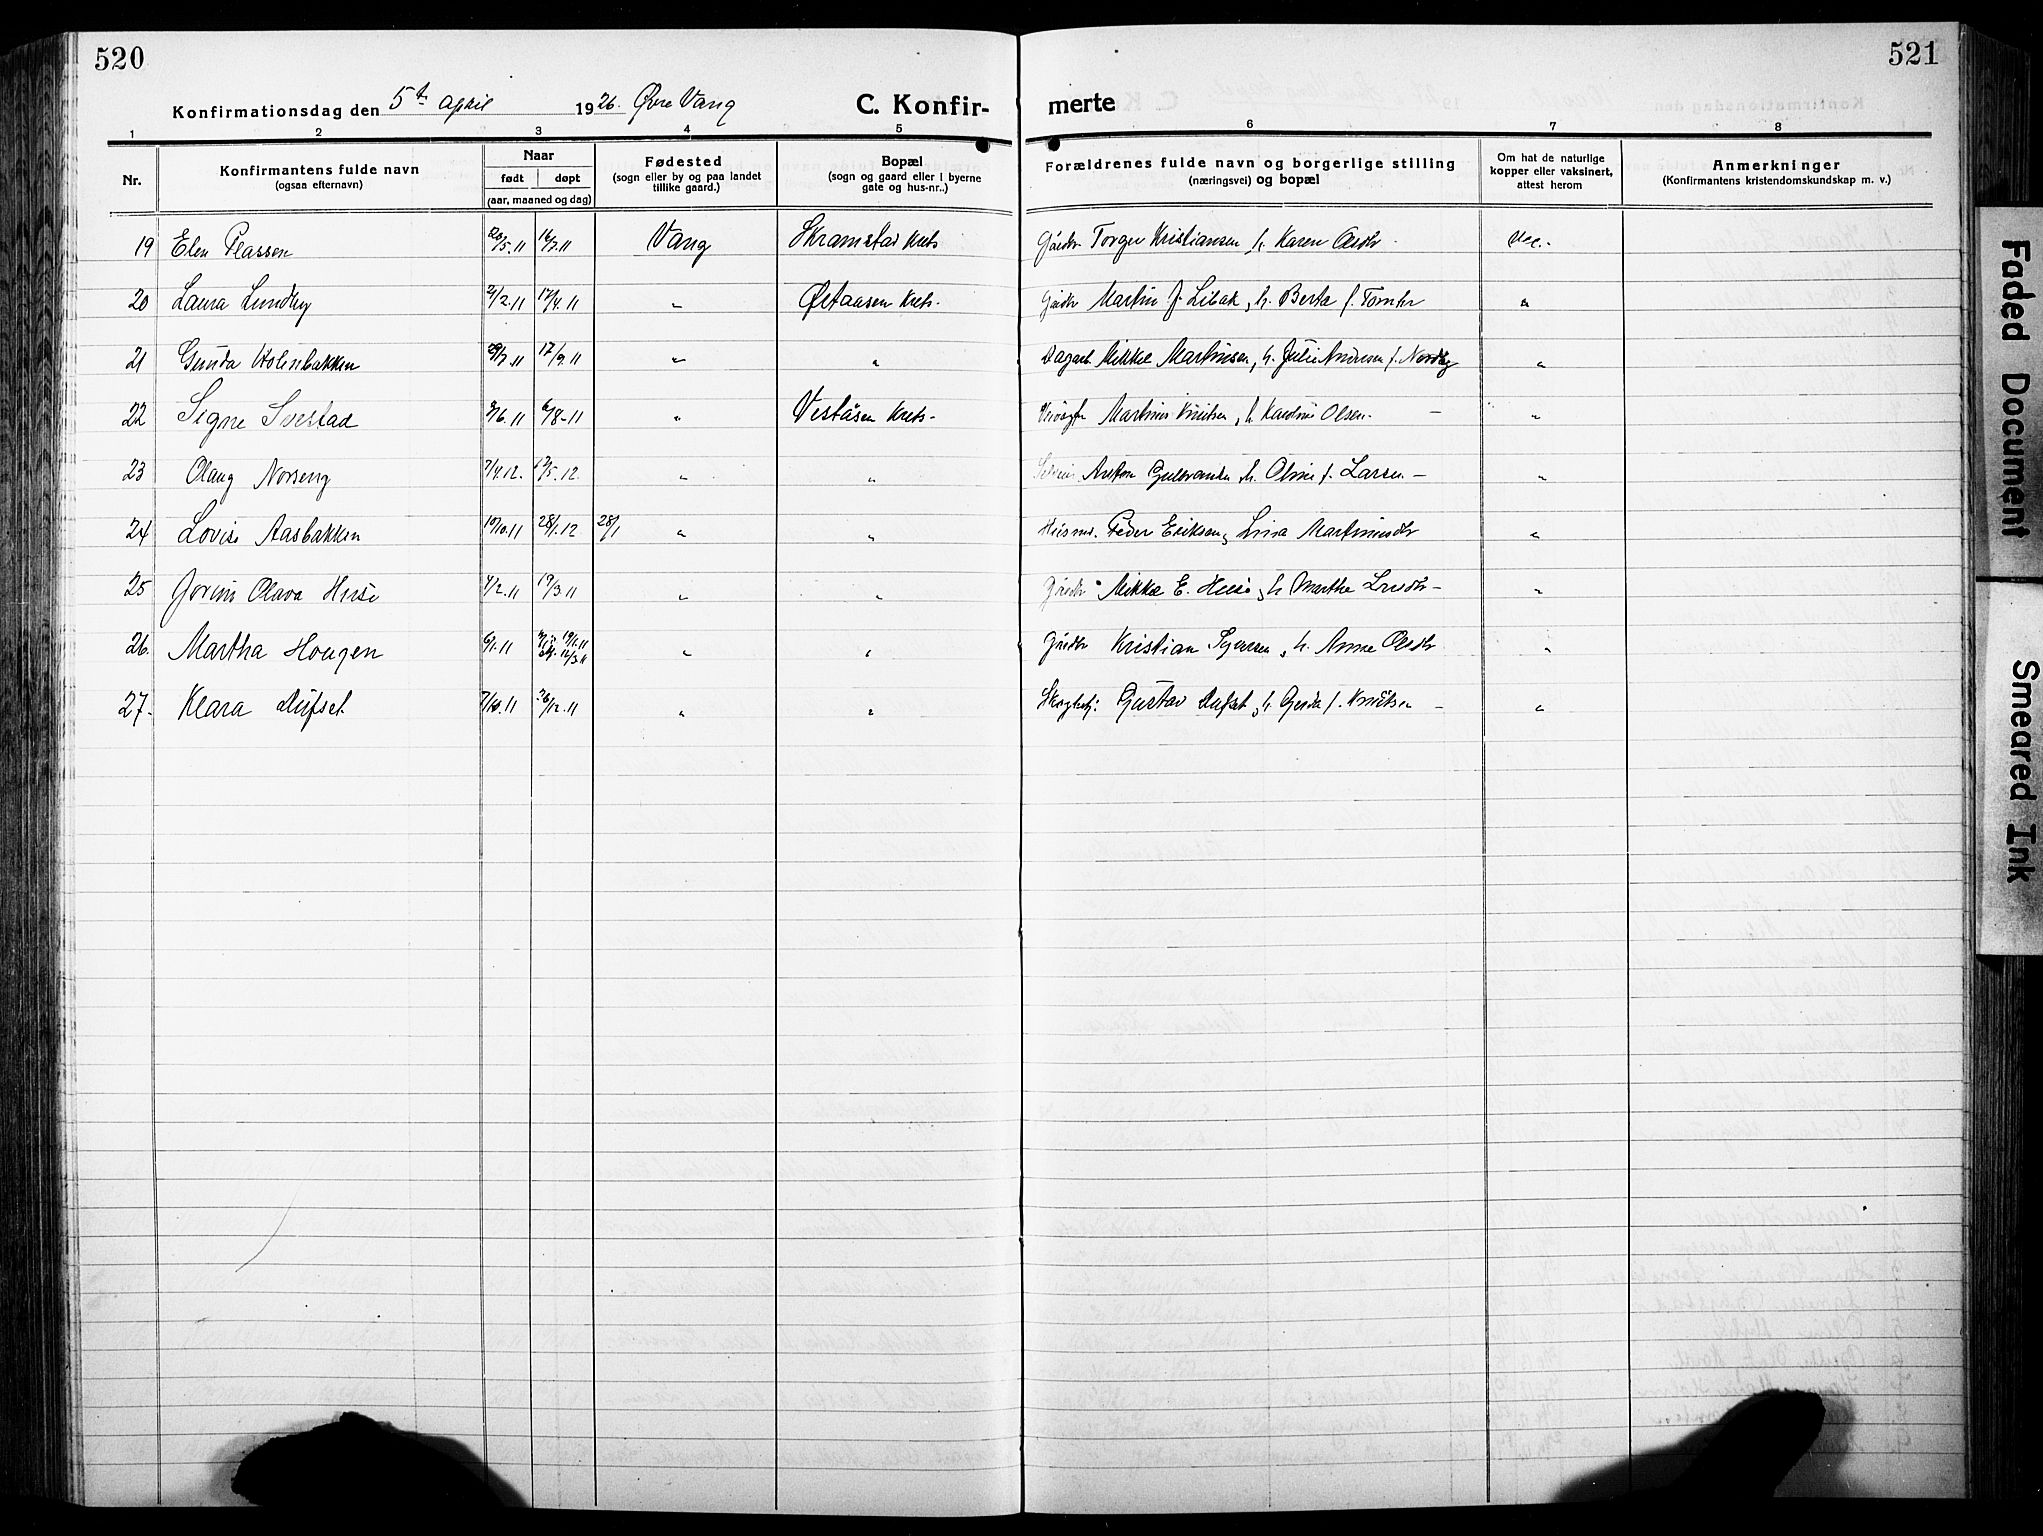 520
521
Konfirmationsdag den 5te April 1926. Øvre Vang
C. Konfir-
merte
1 2 3 4 5 6 7 8
Nr.
Konfirmantens fulde navn
(ogsaa efternavn)
Naar
født
døpt
(aar, maaned og dag)
Fødested
(sogn eller by og paa landet
tillike gaard.)
Bopæl
(sogn og gaard eller i byerne
gate og hus-nr..)
Forældrenes fulde navn og borgerlige stilling
(næringsvei) og bopæl
Om hat de naturlige
kopper eller vaksinert,
attest herom
Anmerkninger
(Konfirmantens kristendomskundskap m. v.)
19 Elen Plassen 20/5.11 16/7.11 Vang Skramstad Kreds Gårdbr Torger Kristiansen, h. Karen Olsdtr Vac.
20 Laura Lundby 2/2.11 17/4.11 " Østaasen Kreds. Gårdbr Martin J. Libak, h. Berta f. Tomter "
21 Gunda Holenbakken 29/7.11 17/9.11 " " Dagarb. Mikkel Martinsen, h. Julie Andresen f. Nordby "
22 Signe Sverstad /6.11 6/8-11 " Veståsen Kreds. Martinus Knutsen, h. Karoline Olsen. - "
23 Olaug Norseng 7/4.12. /5.12. " " Anton Gulbrandsen h. Oline f. Larsen - "
24 Lovise Aasbakken 10/10.11 28/1.12 28/1 " " Husmd. Peder Eriksen, Lina Martinusdtr "
25 Jorun Olava Huse /2.11 19/3.11 " " Gårdbr Mikkel E. Huse, h. Marthe Larsdtr - "
26. Martha Hougen 6/1.11 19/1.11 12/3.11 " " Gårdbr Kristian Syversen, h. Anne Olsdtr "
27. Klara Aufset 7/10.11 26/12.11 " " Skogbetj. Gustav Aufset, h. Gerda f. Knutsen - "
Faded Document
Smeared Ink